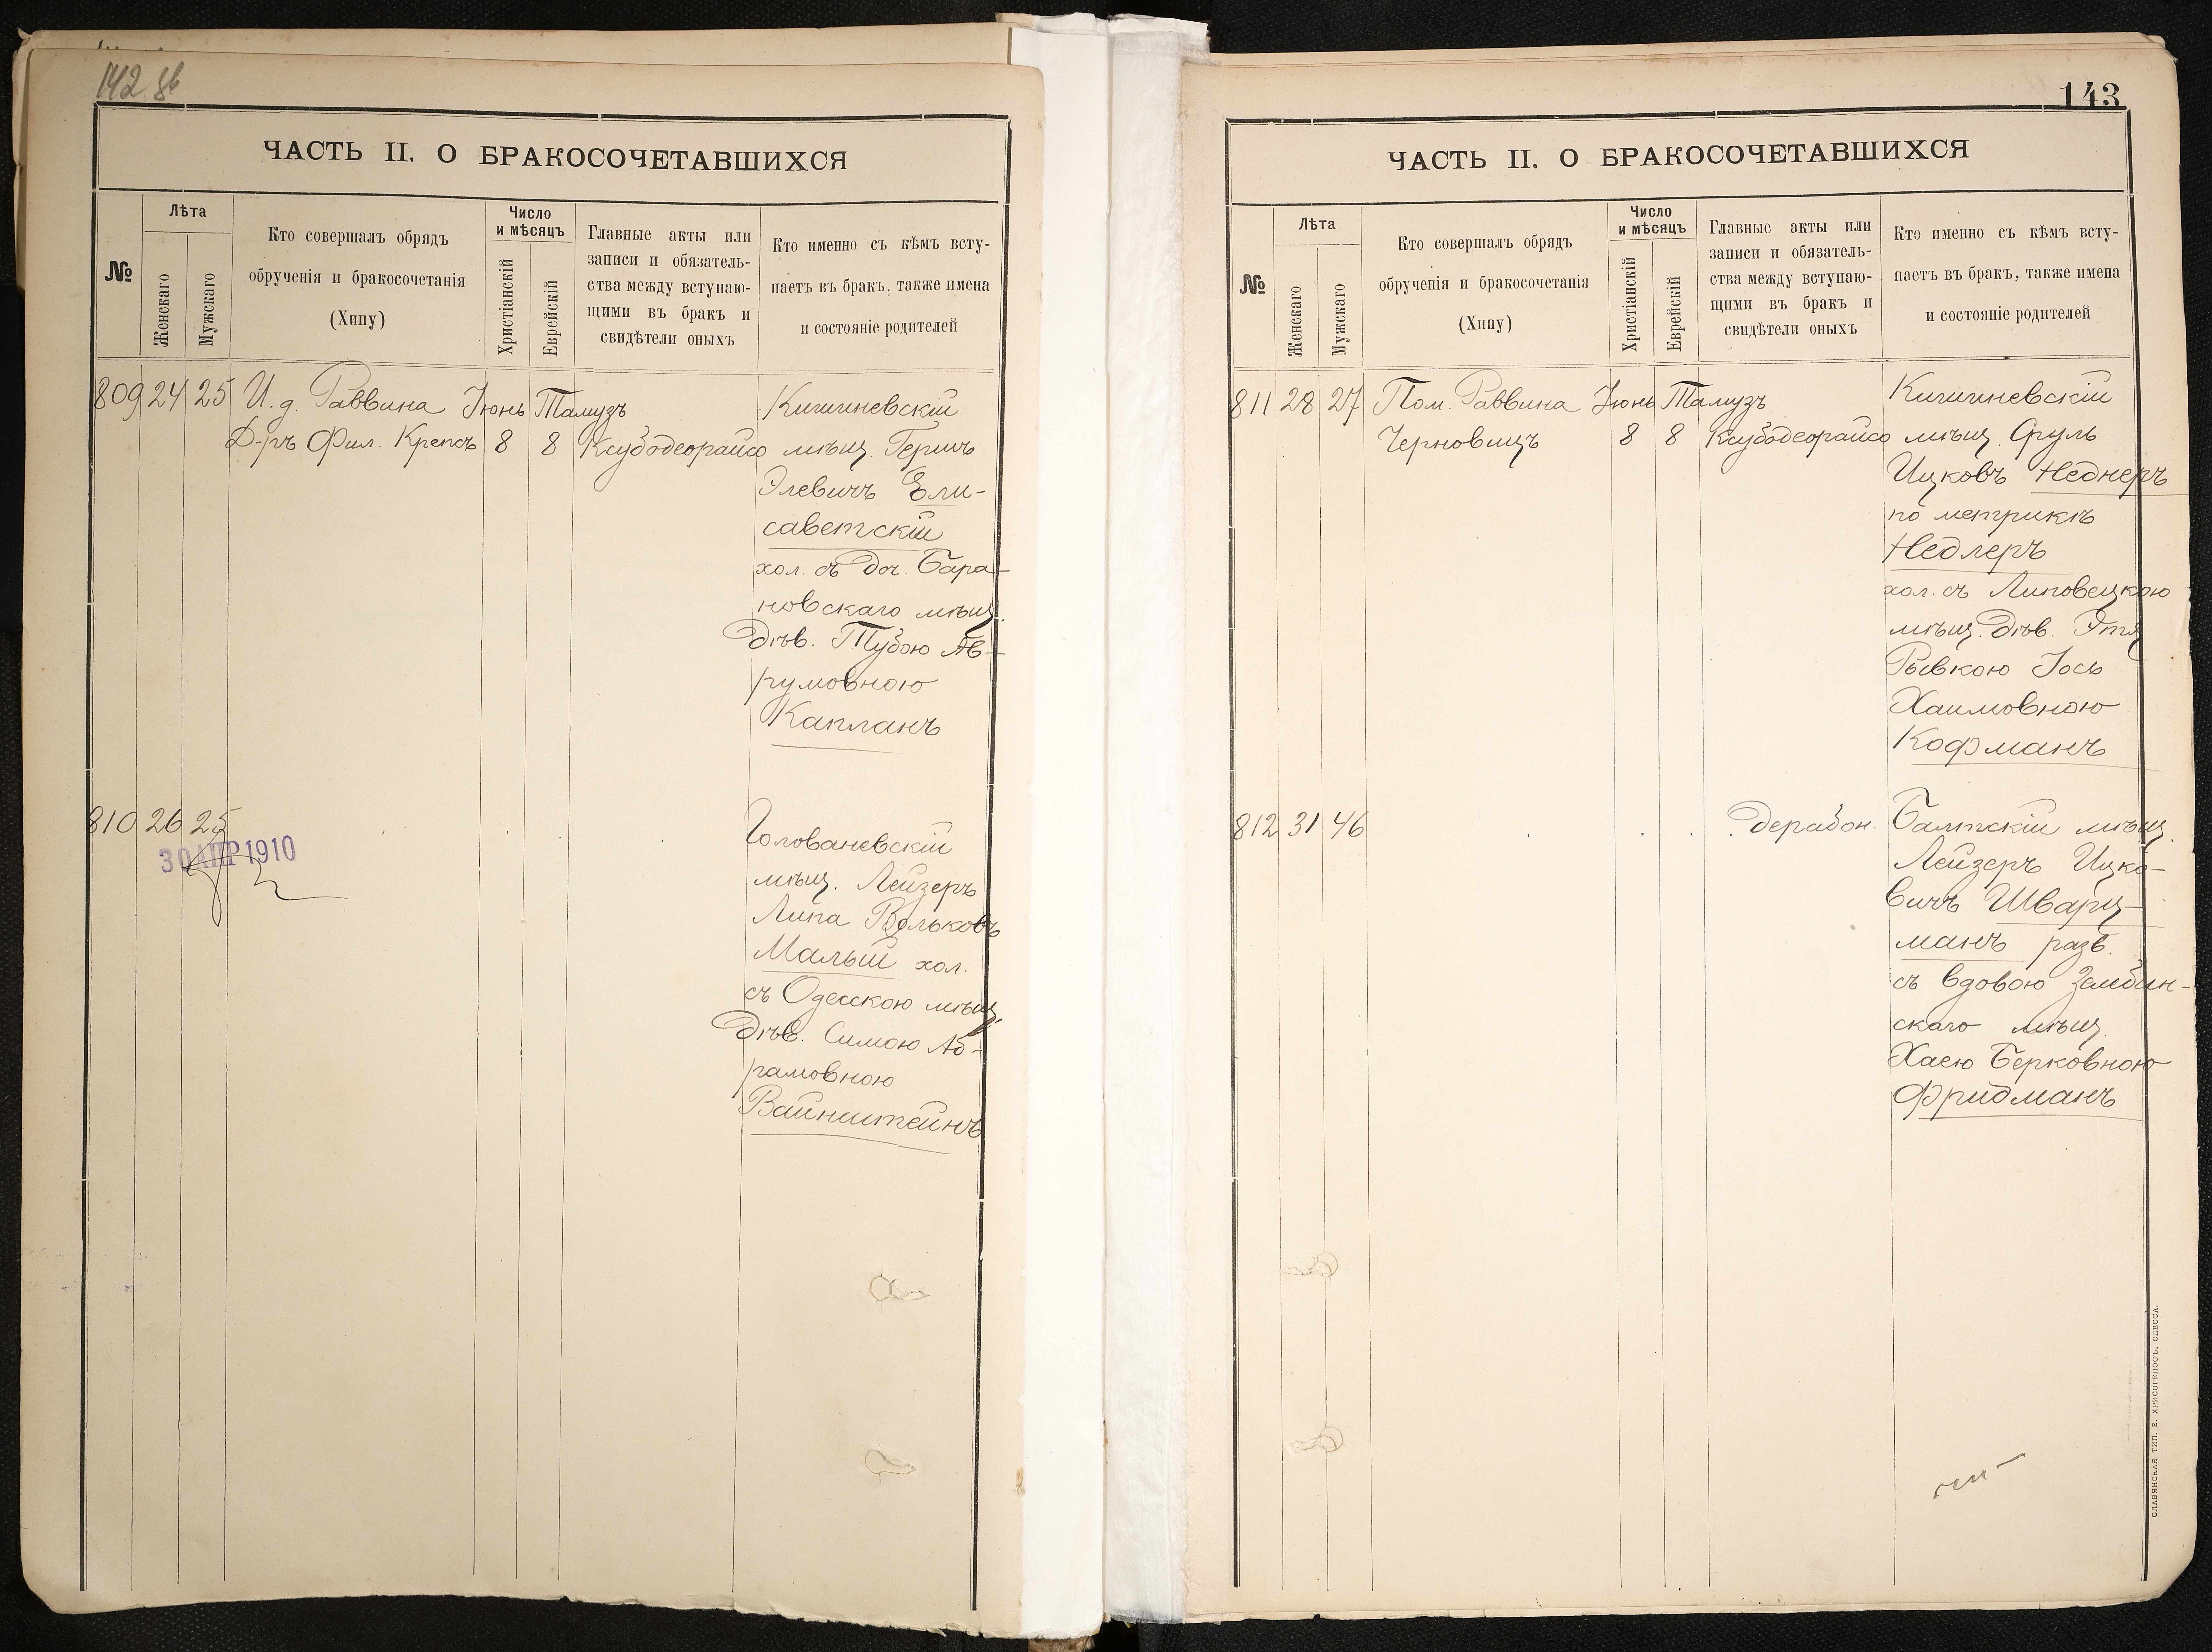 142 об
ЧАСТЬ II. О БРАКОСОЧЕТАВШИХСЯ
№
Лѣта
Женскаго
Мужскаго
Кто совершалъ обрядъ
обрученія и бракосочетанія
(Хипу)
Число
и мѣсяцъ
Христіанскій
Еврейскій
Главные акты или
записи и обязатель-
ства между вступаю-
щими въ бракъ и
свидѣтели оныхъ
Кто именно съ кѣмъ всту-
паетъ въ бракъ, также имена
и состояніе родителей
809 24 25 И. д. Раввина Іюнь Тамузъ Кишиневскій
Д-ръ Фил. Крепсъ 8 8 Ксубодеорайсо мѣщ. Гершъ
Элевичъ Ели-
саветскій
хол. съ доч. Бара-
новскаго мѣщ.
Дѣв. Тубою Ав-
румовною
Капланъ
810 26 25 Голованевскій
30 АПР 1910
мѣщ. Лейзеръ
Липа Вольковъ
Малый хол.
съ Одесскою мѣщ.
Дѣв. Симою Аб-
рамовною
Вайнштейнъ
143
ЧАСТЬ II. О БРАКОСОЧЕТАВШИХСЯ
№
Лѣта
Женскаго
Мужскаго
Кто совершалъ обрядъ
обрученія и бракосочетанія
(Хипу)
Число
и мѣсяцъ
Христіанскій
Еврейскій
Главные акты или
записи и обязатель-
ства между вступаю-
щими въ бракъ и
свидѣтели оныхъ
Кто именно съ кѣмъ всту-
паетъ въ бракъ, также имена
и состояніе родителей
811 28 27 Пом. Раввина Іюнь Тамузъ Кишиневскій
Черновицъ 8 8 Ксубодеорайсо мѣщ. Сруль
Ицковъ Неднеръ
по метрикѣ
Недлеръ
хол. съ Липовецкою
мѣщ. Дѣв. Этя
Рывкою Іось
Хаимовною
Кофманъ
812 31 46 дерабон. Балтскій мѣщ.
Лейзеръ Ицко-
вичъ Шварц-
манъ разв.
съ вдовою Зембин-
скаго мѣщ.
Хаею Берковною
Фридманъ
СЛАВЯНСКАЯ ТИП. Е. ХРИСОГЕЛОСЪ, ОДЕССА.